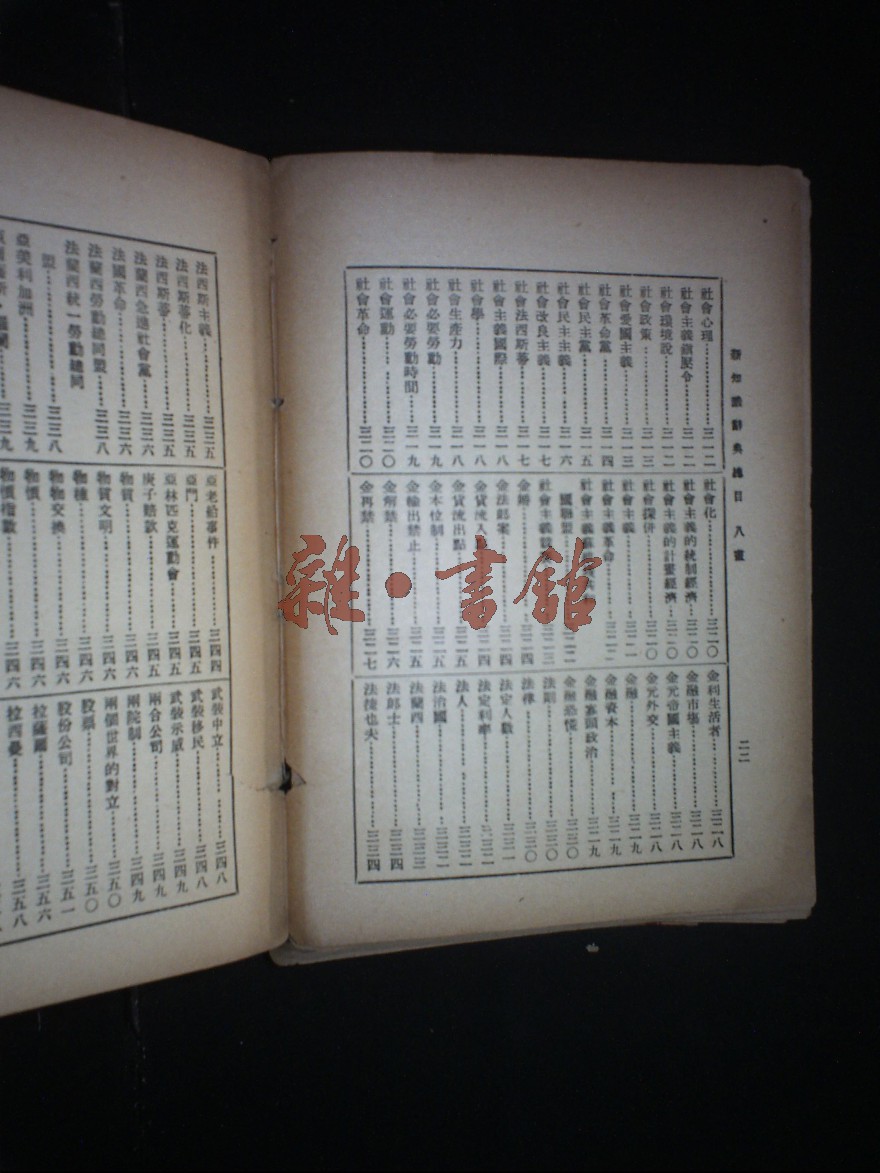 新知識辭典總目 八畫
二二
社會心理……三一二
社會主義鎮壓令……三一二
社會環境說……三一二
社會政策……三一三
社會愛國主義……三一三
社會革命黨……三一四
社會民主黨……三一五
社會民主主義……三一六
社會改良主義……三一七
社會法西斯蒂……三一七
社會主義國際……三一八
社會學……三一八
社會生產力……三一八
社會必要勞動……三一九
社會必要勞動時間……三一九
社會運動……三二〇
社會革命……三二〇
社會化……三二〇
社會主義的統制經濟……三二〇
社會主義的計畫經濟……三二〇
社會深併……三二〇
社會主義……三二一
社會主義革命
社會主義
社會主義
國聯盟
金鎊……三二四
金法郎案……三二四
金貨流入點……三二四
金貨流出點……三二五
金本位制……三二五
金輸出禁止……三二五
金解禁……三二六
金再禁……三二七
金利生活者……三二八
金融市場……三二八
金元帝國主義……三二八
金元外交……三二八
金融……三二九
金融資本……三二九
金融寡頭政治……三二九
金融恐慌……三三〇
法則……三三〇
法律……三三〇
法定人數……三三一
法定利率……三三二
法人……三三二
法治國……三三二
法蘭西……三三三
法郎士……三三四
法捷也夫……三三四
法西斯主義……三三五
法西斯蒂化……三三五
法西斯蒂……三三五
法蘭西急進社會黨……三三六
法國革命……三三六
法蘭西勞動總同盟……三三八
法蘭西統一勞動總同
盟……三三八
亞美利加洲……三三九
三三九
亞老給事件……三四四
亞門……三四五
亞林匹克運動會……三四五
庚子賠款……三四五
物質……三四六
物質文明……三四六
物種……三四六
物物交換……三四六
物價……三四六
物價指數……三四六
武裝中立……三四八
武裝移民……三四八
武裝示威……三四九
兩合公司……三四九
兩院制……三四九
兩個世界的對立……三五〇
股票……三五〇
股份公司……三五一
拉薩爾……三五六
拉西曼……三五八
雜·書館